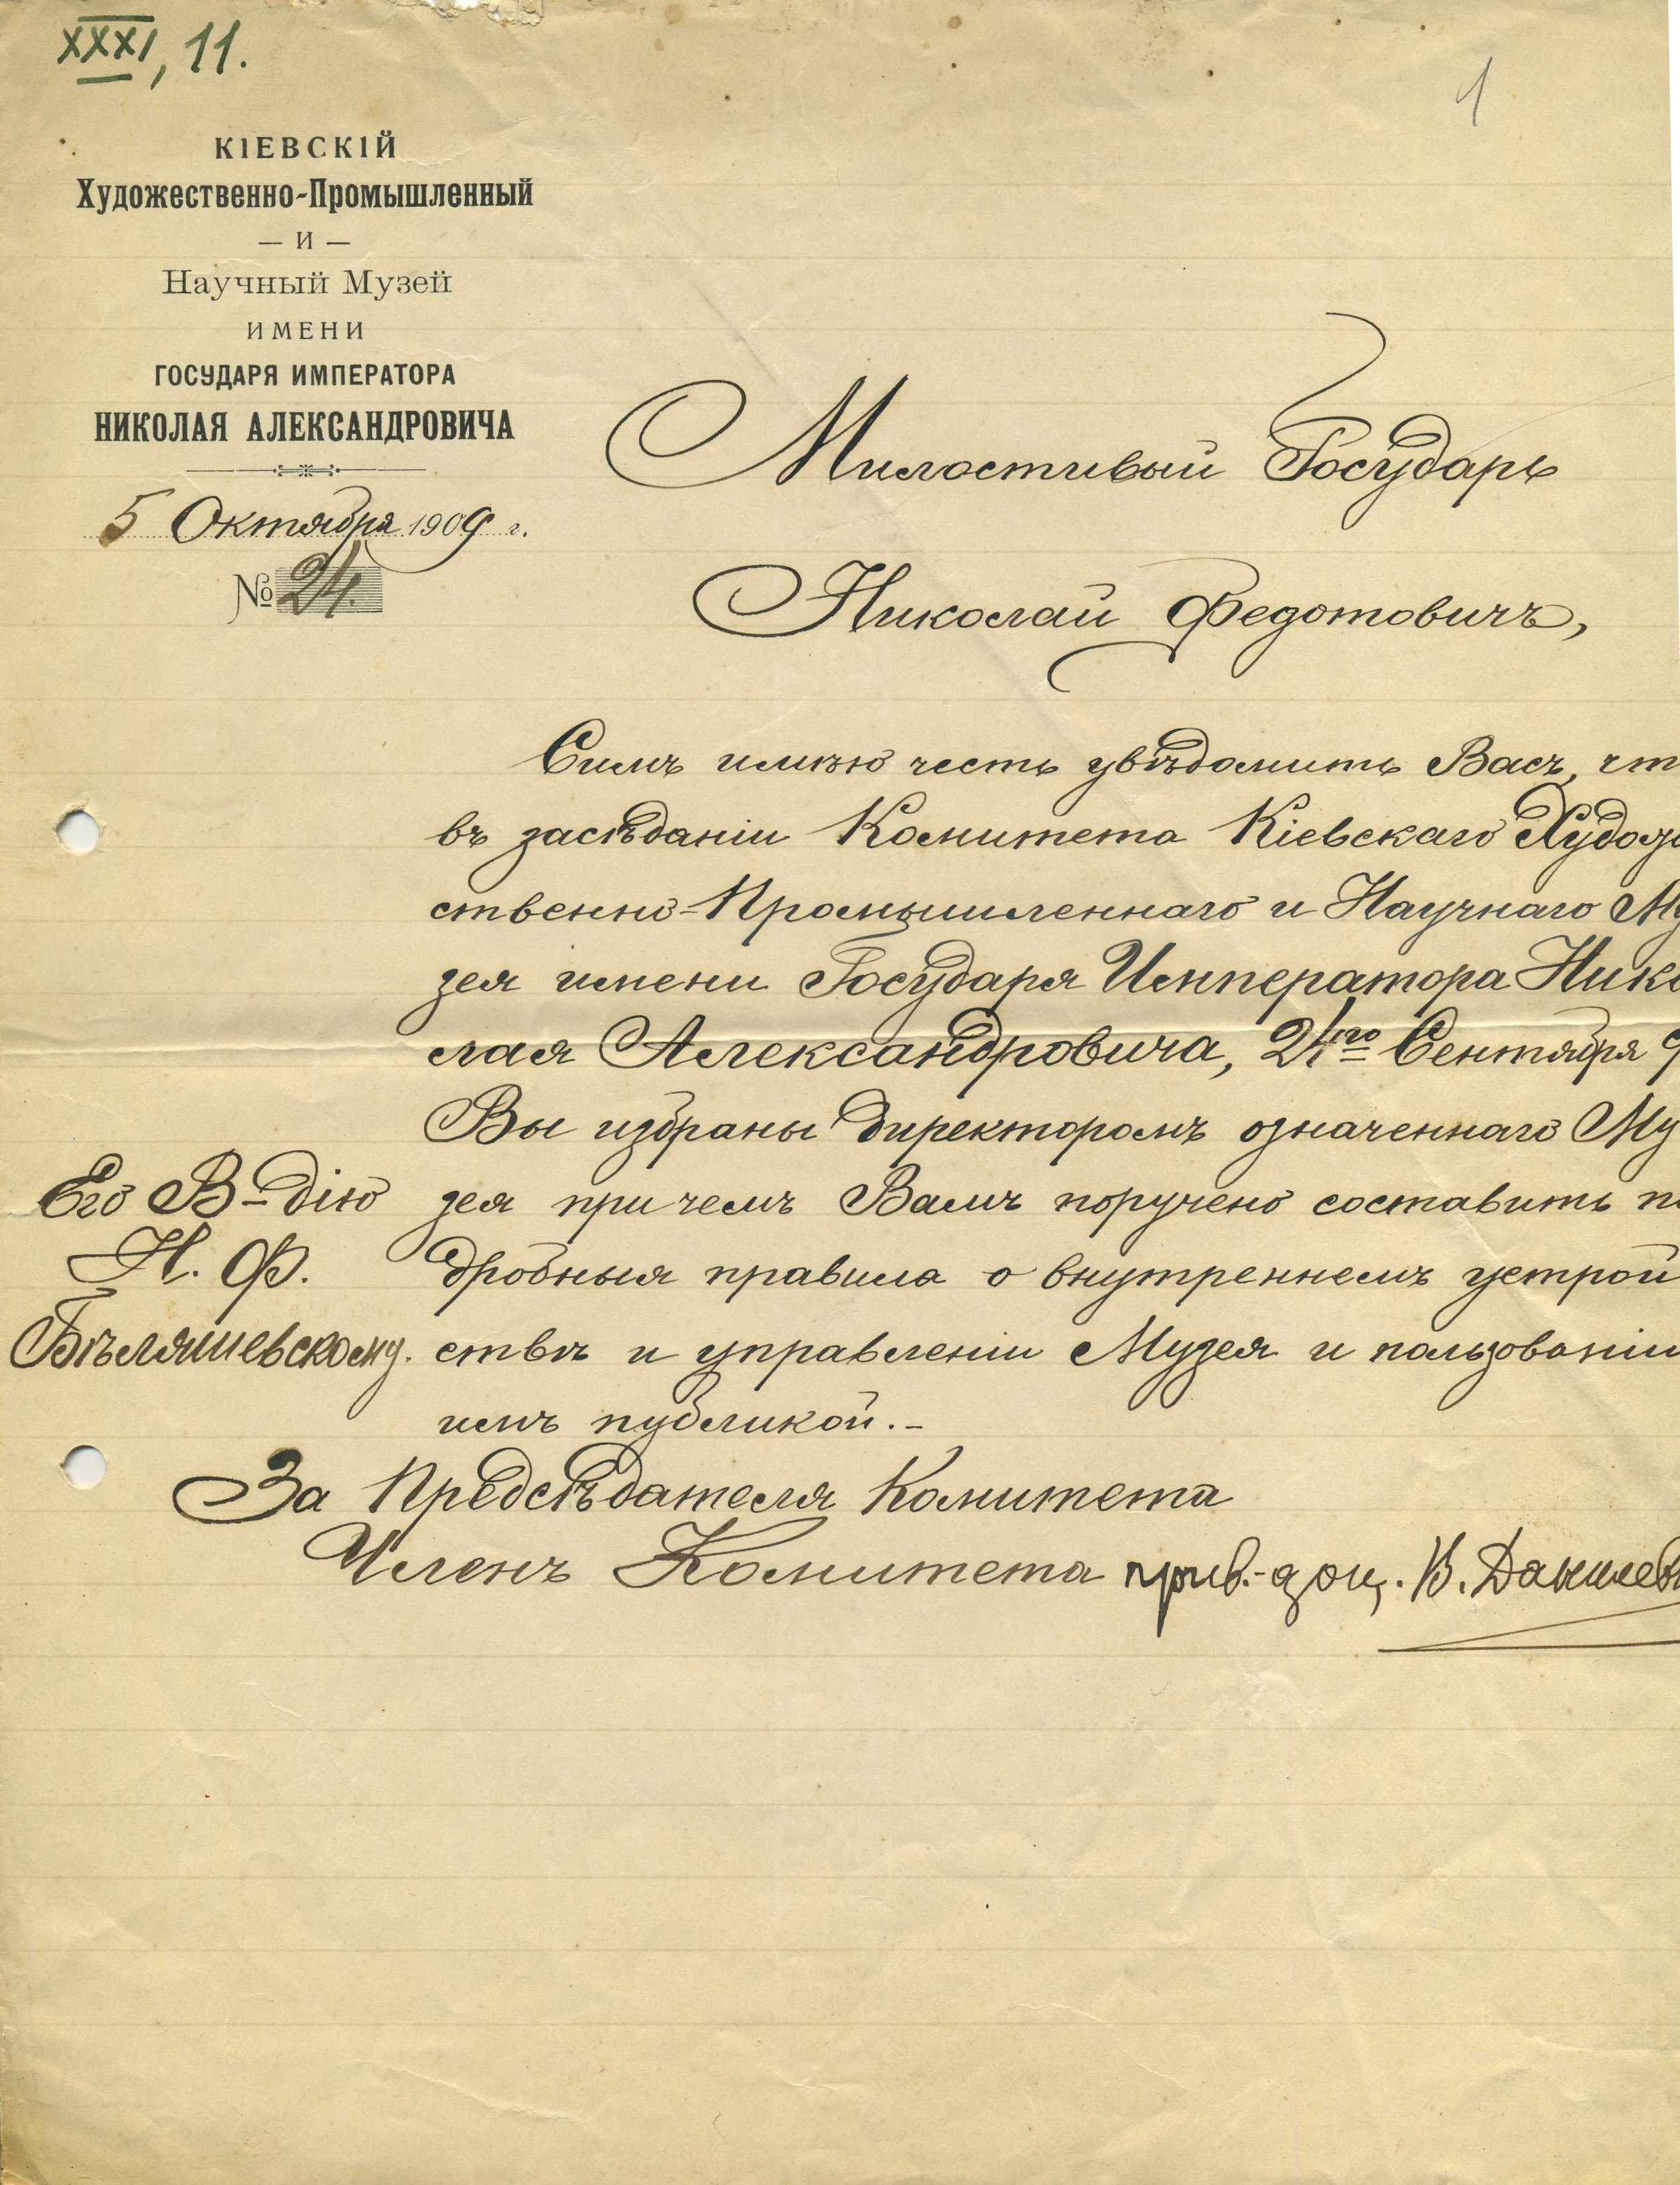 XXXI, 11.
1
КІЕВСКІЙ
Художественно-Промышленный
— И —
Научный Музей
ИМЕНИ
ГОСУДАРЯ ИМПЕРАТОРА
НИКОЛАЯ АЛЕКСАНДРОВИЧА
5 Октября 1909 г.
№ 24.
Милостивый Государь
Николай Федотовичъ,
Симъ имѣю честь увѣдомить Васъ, чт
въ засѣданіи Комитета Кіевскаго Художе
ственно-Промышленнаго и Научнаго Му
зея имени Государя Императора Нико
лая Александровича, 24го Сентября
Вы избраны директоромъ означеннаго Му
зея при чемъ Вамъ поручено составить по
дробныя правила о внутреннемъ устрой
ствѣ и управленіи Музея и пользованіи
имъ публикой.-
Его В-дію
Н. Ф.
Бѣляшевскому.
За Предсѣдателя Комитета
Членъ Комитета прив.-доц. В. Данилеви